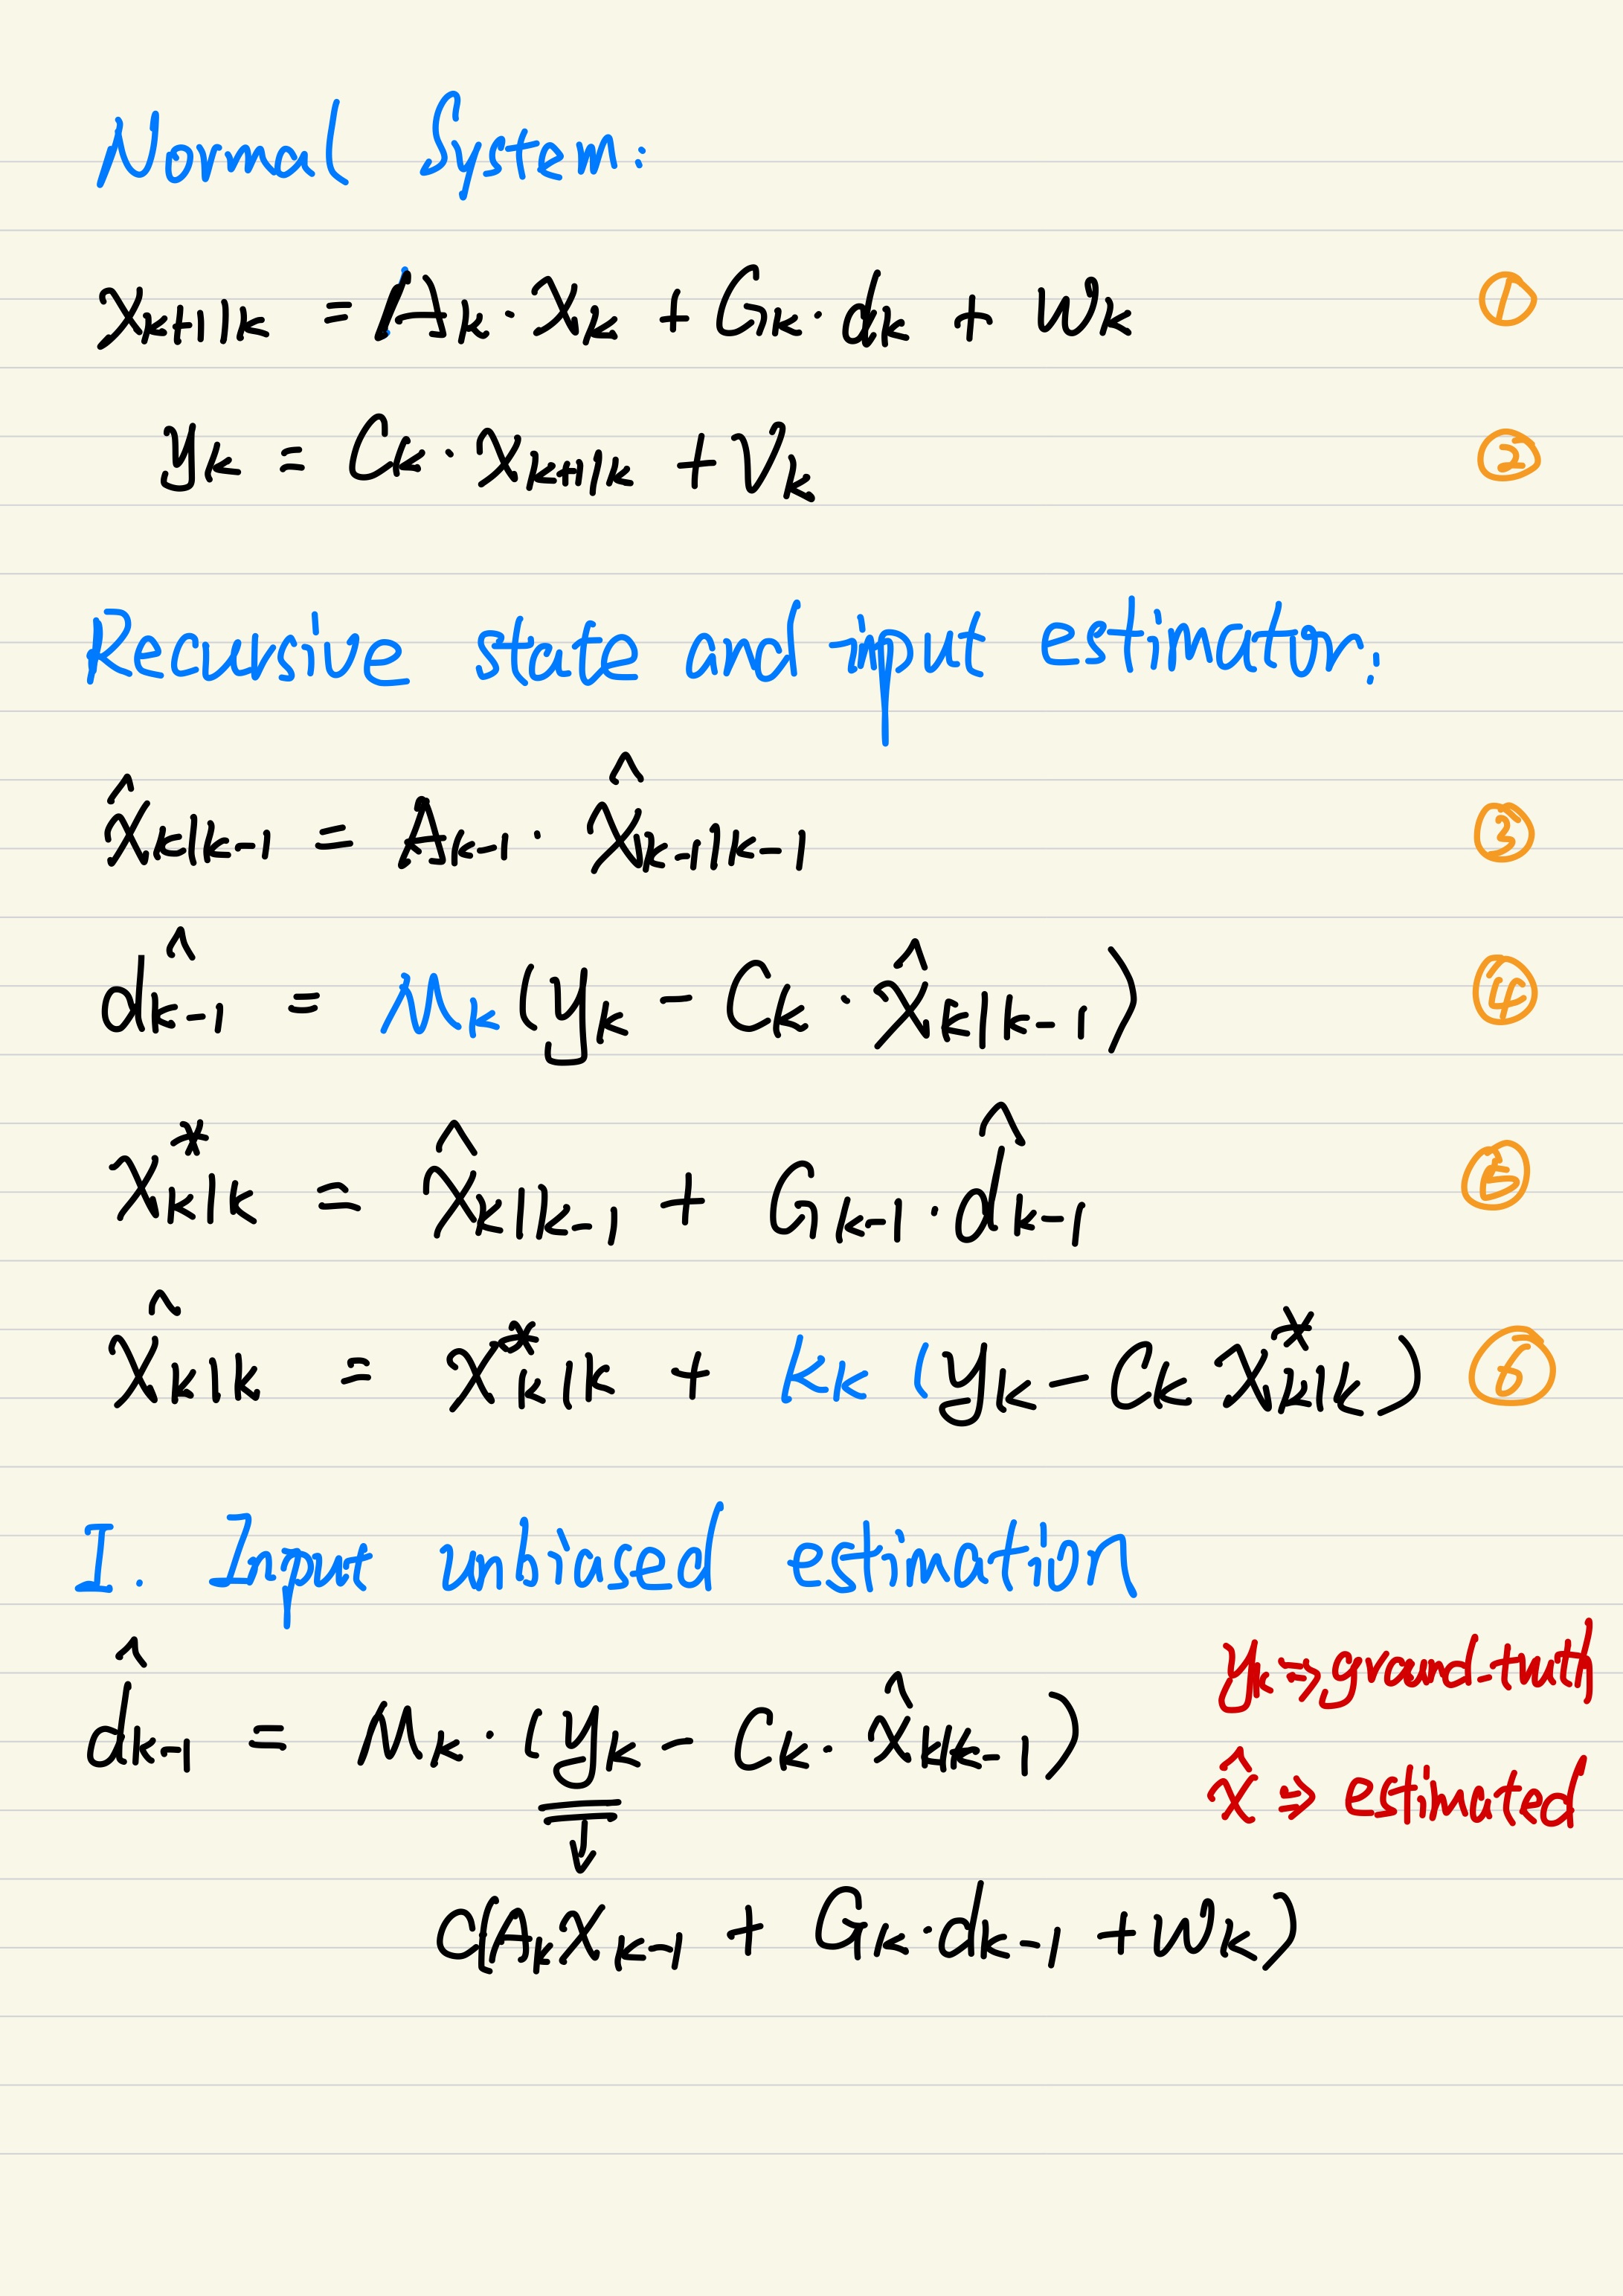 Normal System:
x_{k+1|k} = A_k · x_k + G_k · d_k + w_k ①
y_k = C_k · x_{k+1|k} + v_k ②
Recursive state and input estimator:
x̂_{k|k-1} = A_{k-1} · x̂_{k-1|k-1} ③
d̂_{k-1} = M_k (y_k - C_k · x̂_{k|k-1}) ④
x*_{k|k} = x̂_{k|k-1} + G_{k-1} · d̂_{k-1} ⑤
x̂_{k|k} = x*_{k|k} + k_k (y_k - C_k x*_{k|k}) ⑥
I. Input unbiased estimation
d̂_{k-1} = M_k · (y_k - C_k · x̂_{k|k-1})
y_k ⇒ ground-truth
x̂ ⇒ estimated
↓
C(A_k x_{k-1} + G_k · d_{k-1} + w_k)